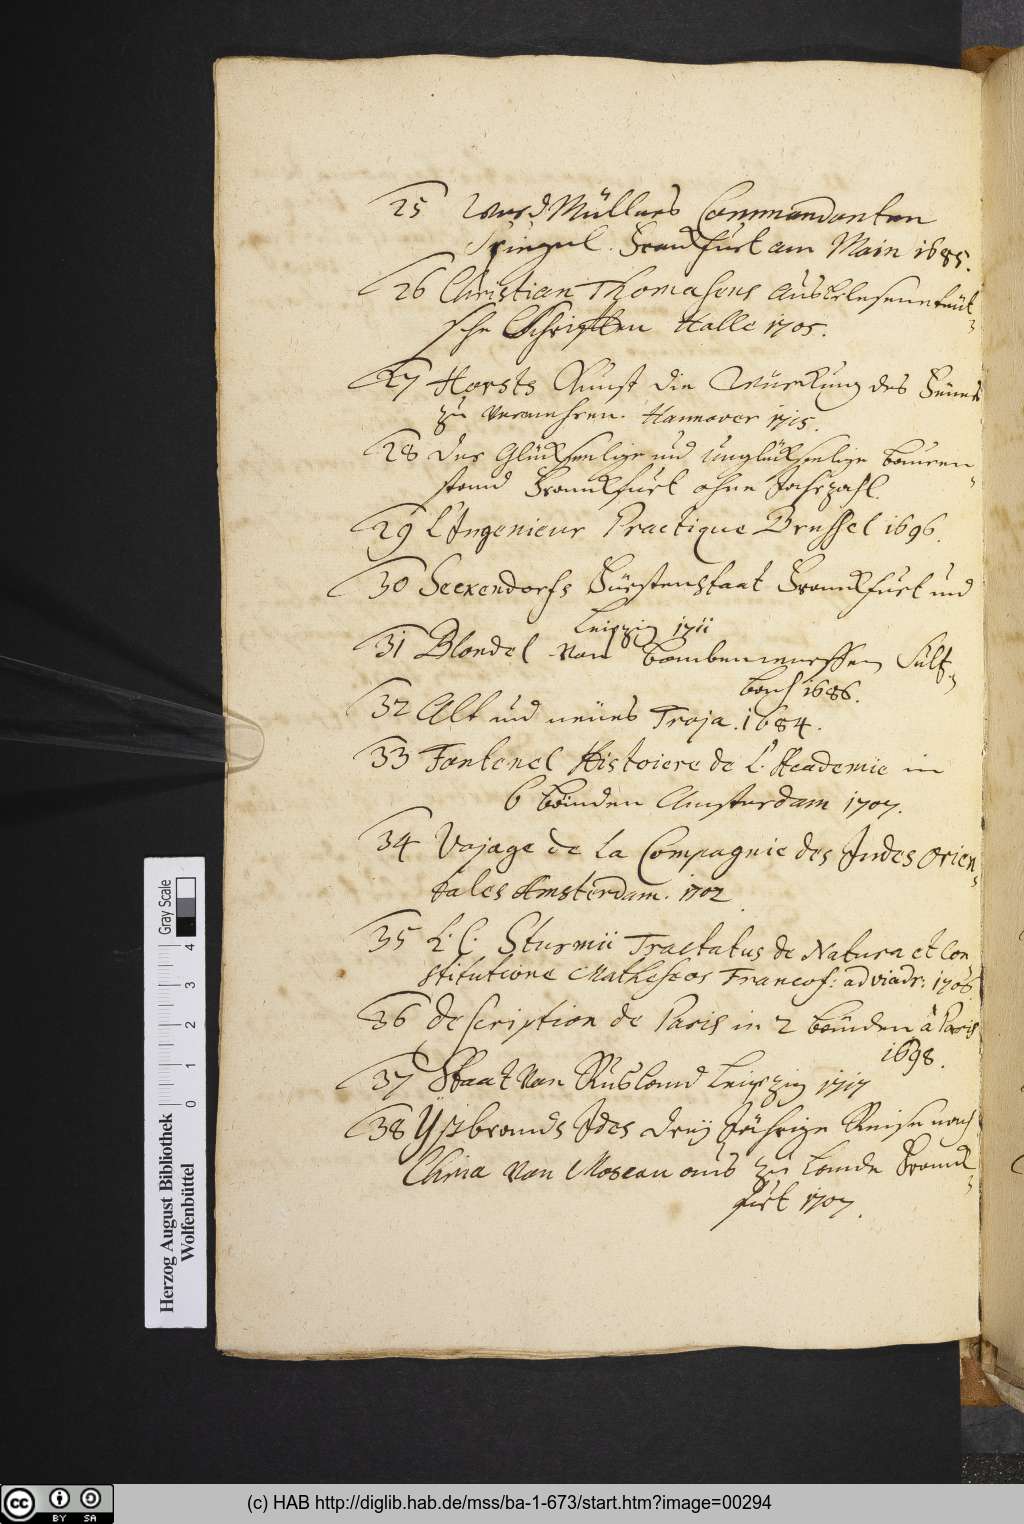 25 WerdMüllers Commandanten
Spiegel. Franckfurt am Main 1685.
26 Christian Thomasens Auserlesene teüt-
sche Schrifften Halle 1705.
27 Horsts Kunst die Würckung des Feüers
zu vermehren. Hannover 1715.
28 Der Glückseelige und Unglückseelige bauren-
stand Franckfurt ohne Jahrzahl.
29 L'Ingenieur Practique Brussel 1696.
30 Seckendorfs Fürstenstaat Franckfurt und
Leipzig 1711
31 Blondel von bombenwerffen Sultz-
bach 1686.
32 Alt und neües Troja. 1684.
33 Fontenel Histoiere de L'Academie in
6 bänden Amsterdam 1707.
34 Vojage de la Compagnie des Indes Orien-
tales Amsterdam. 1702
35 L. C. Sturmii Tractatus de Natura et Con
stitutione Matheseos Francof: ad viadr: 1706.
36 description de Paris in 2 bänden à Paris
1698.
37 Staat von Rusland Leipzig 1717
38 Yßbrands Ides dreij Jährige Reise nach
China von Moscau aus zu Lande Franck-
furt 1707.
Herzog August Bibliothek
Wolfenbüttel
0 1 2 3 4
Gray Scale
cc BY SA
(c) HAB http://diglib.hab.de/mss/ba-1-673/start.htm?image=00294